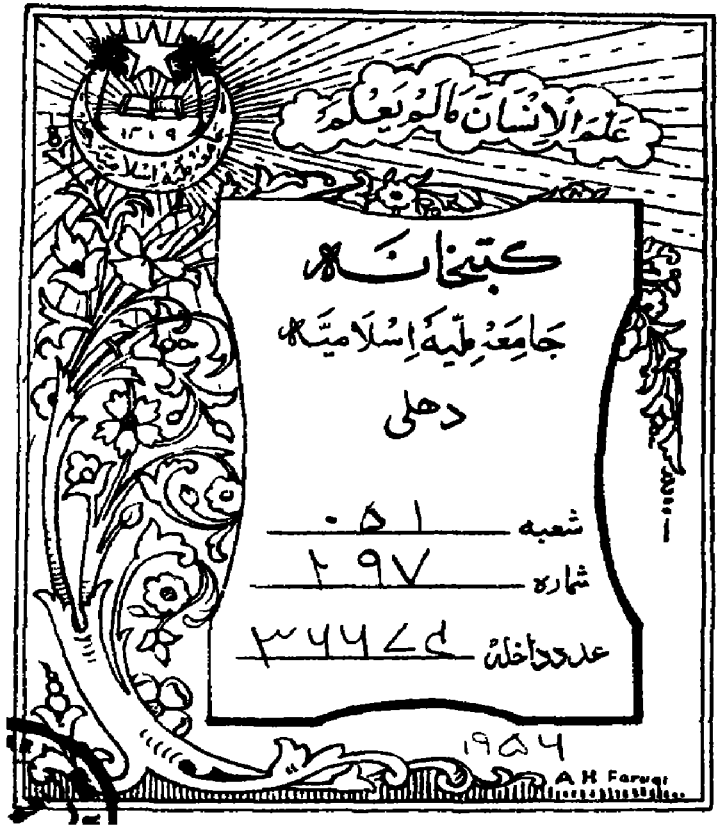 عَلَّمَ الْاِنْسَانَ مَا لَمْ يَعْلَمْ
۱۳۱۹
جامعہ ملیہ اسلامیہ
کتبخانہ
جَامِعَہ مِلّیہ اِسْلَامیَّہ
دھلی
شعبہ ۰۵۱
شمارہ ۲۹۷
عدد داخلہ
۱۹۵۶
A H Faruqi